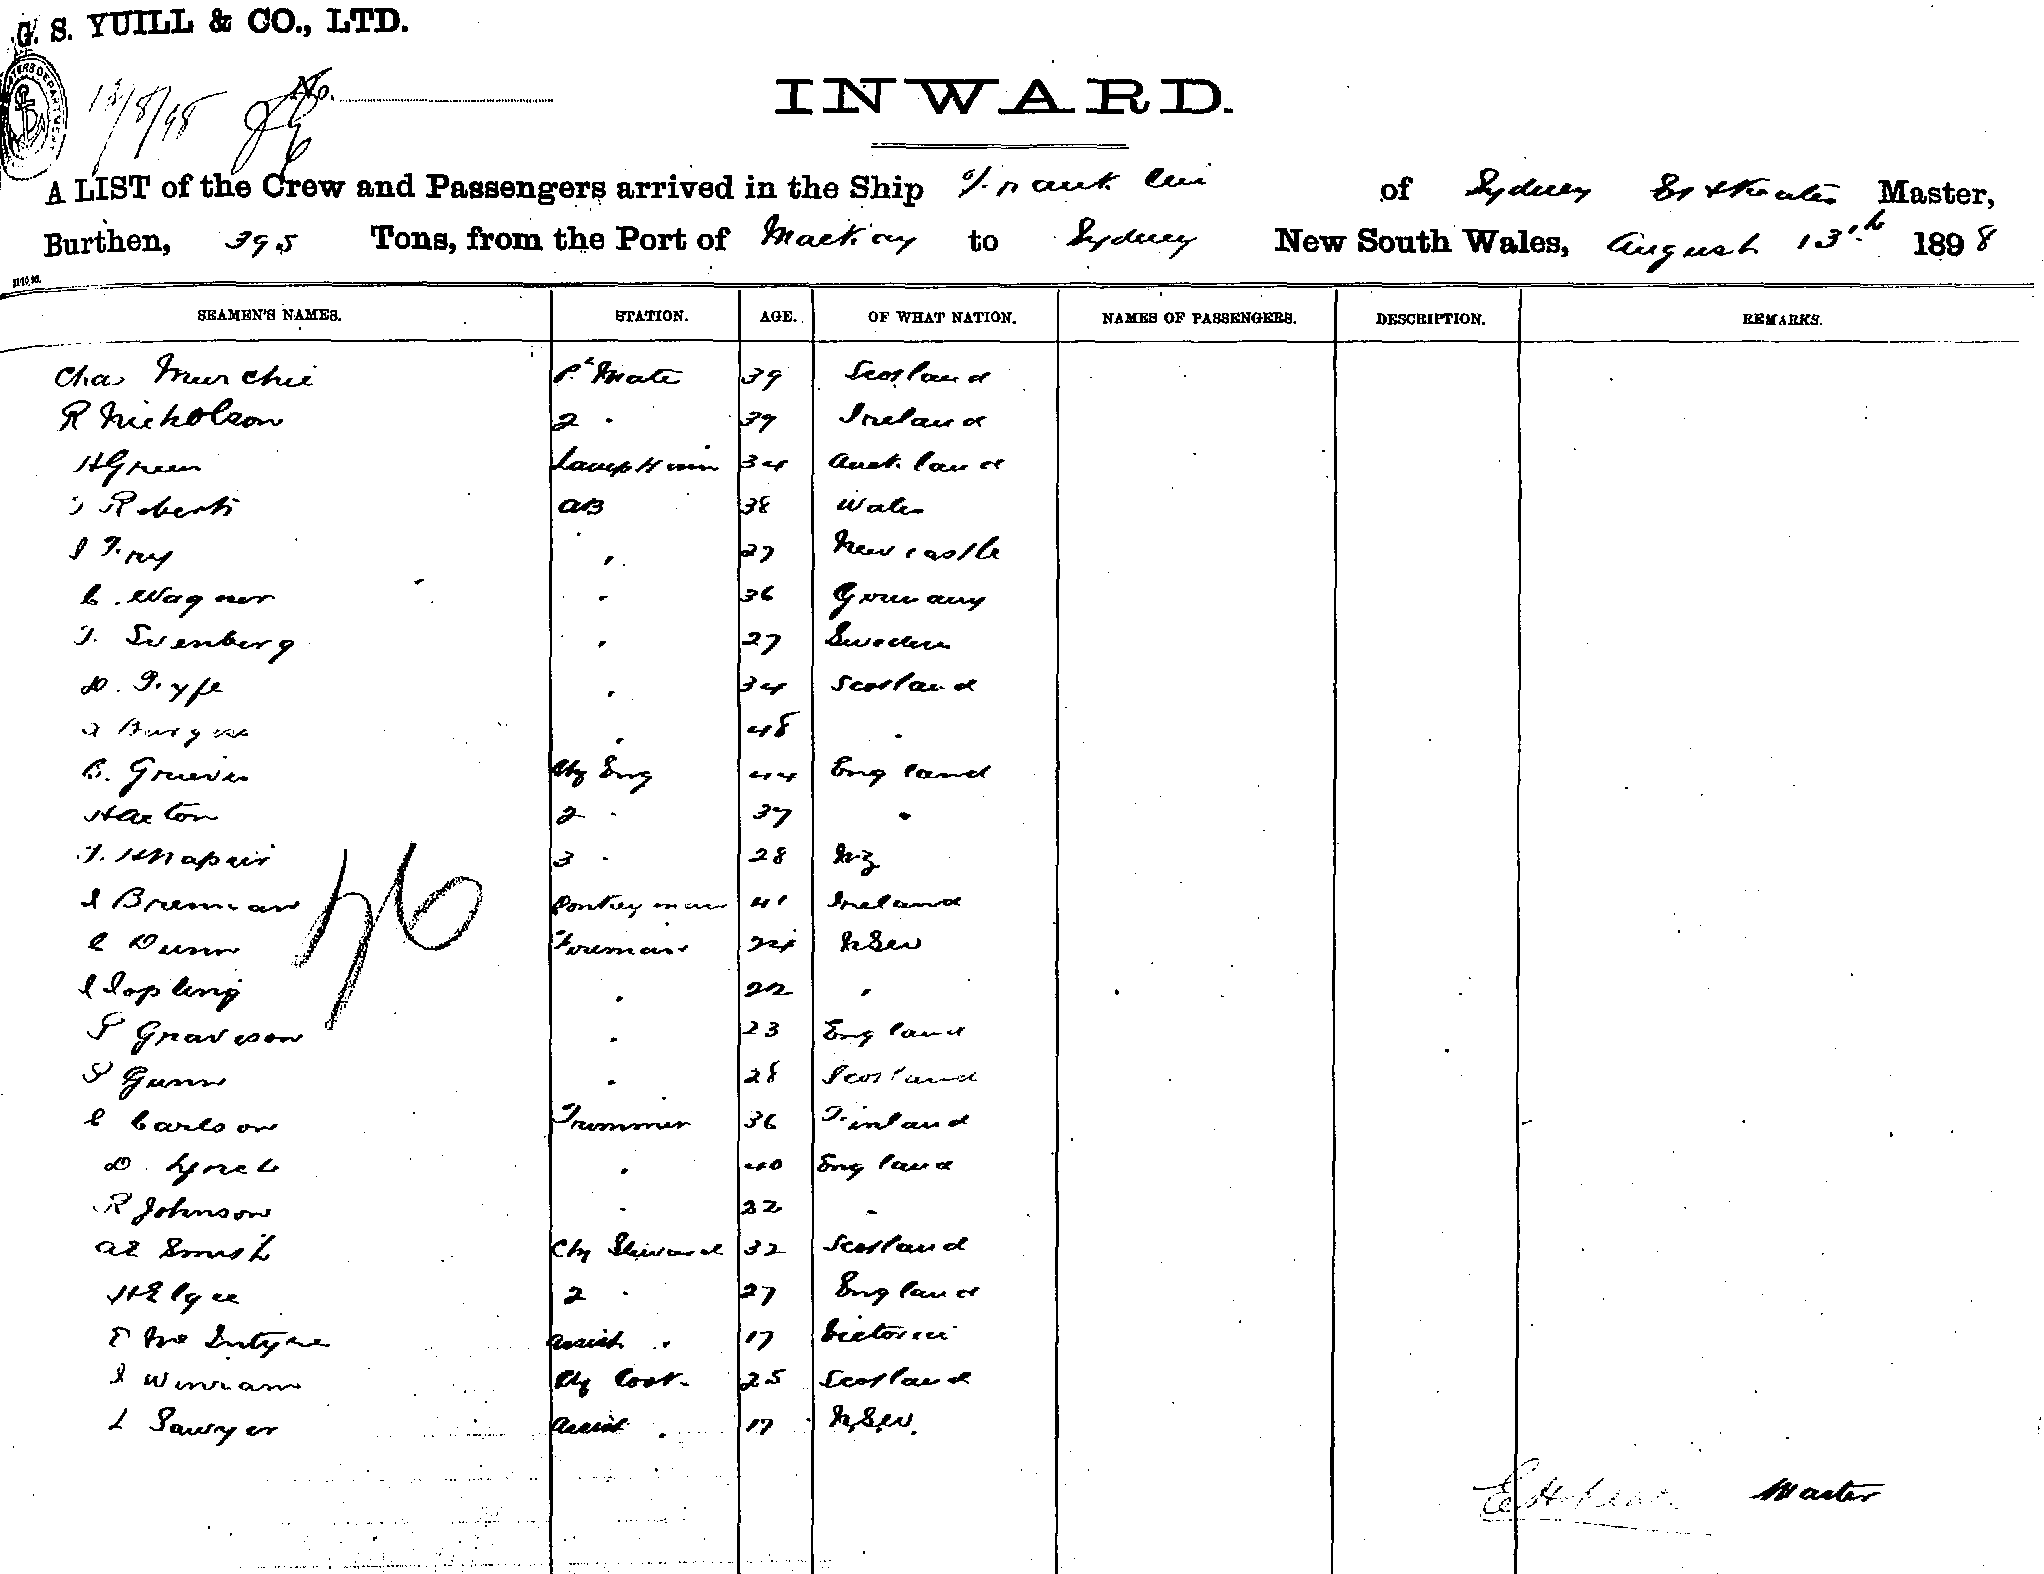 G. S. YUILL & CO., LTD.
13/8/98 No.
INWARD.
A LIST of the Crew and Passengers arrived in the Ship of Sydney Master,
Burthen, 395 Tons, from the Port of Mackay to Sydney New South Wales, August 13th 1898
SEAMEN'S NAMES. STATION. AGE. OF WHAT NATION. NAMES OF PASSENGERS. DESCRIPTION. REMARKS.
Chas Murchie Mate 39 Scotland
R Nicholson 2 " 39 Ireland
H Green Lamptrim 34 Auckland
Roberts AB 38 Wales
J Fry " 27 Newcastle
C. Wagner " 36 Germany
T. Svenberg " 27 Sweden
D. Fyfe " 34 Scotland
A Burgess " 48 "
Ch Eng 44 England
H Acton 2 " 37 "
3 " 28 NZ
J Brennan Donkeyman 41 Ireland
C Dunn Fireman 24 NSW
J Jopling " 22 "
P Graveson " 23 England
P Gunn " 28 Scotland
C Carlson Trimmer 36 Finland
D. Lynch " 40 England
R Johnson " 22 "
AE Smith Chf Steward 32 Scotland
H Elgee 2 " 27 England
E McIntyre Assist " 17 Victoria
J Winram Chf Cook 25 Scotland
L Sawyer Assist " 17 N.S.W.
76
Master